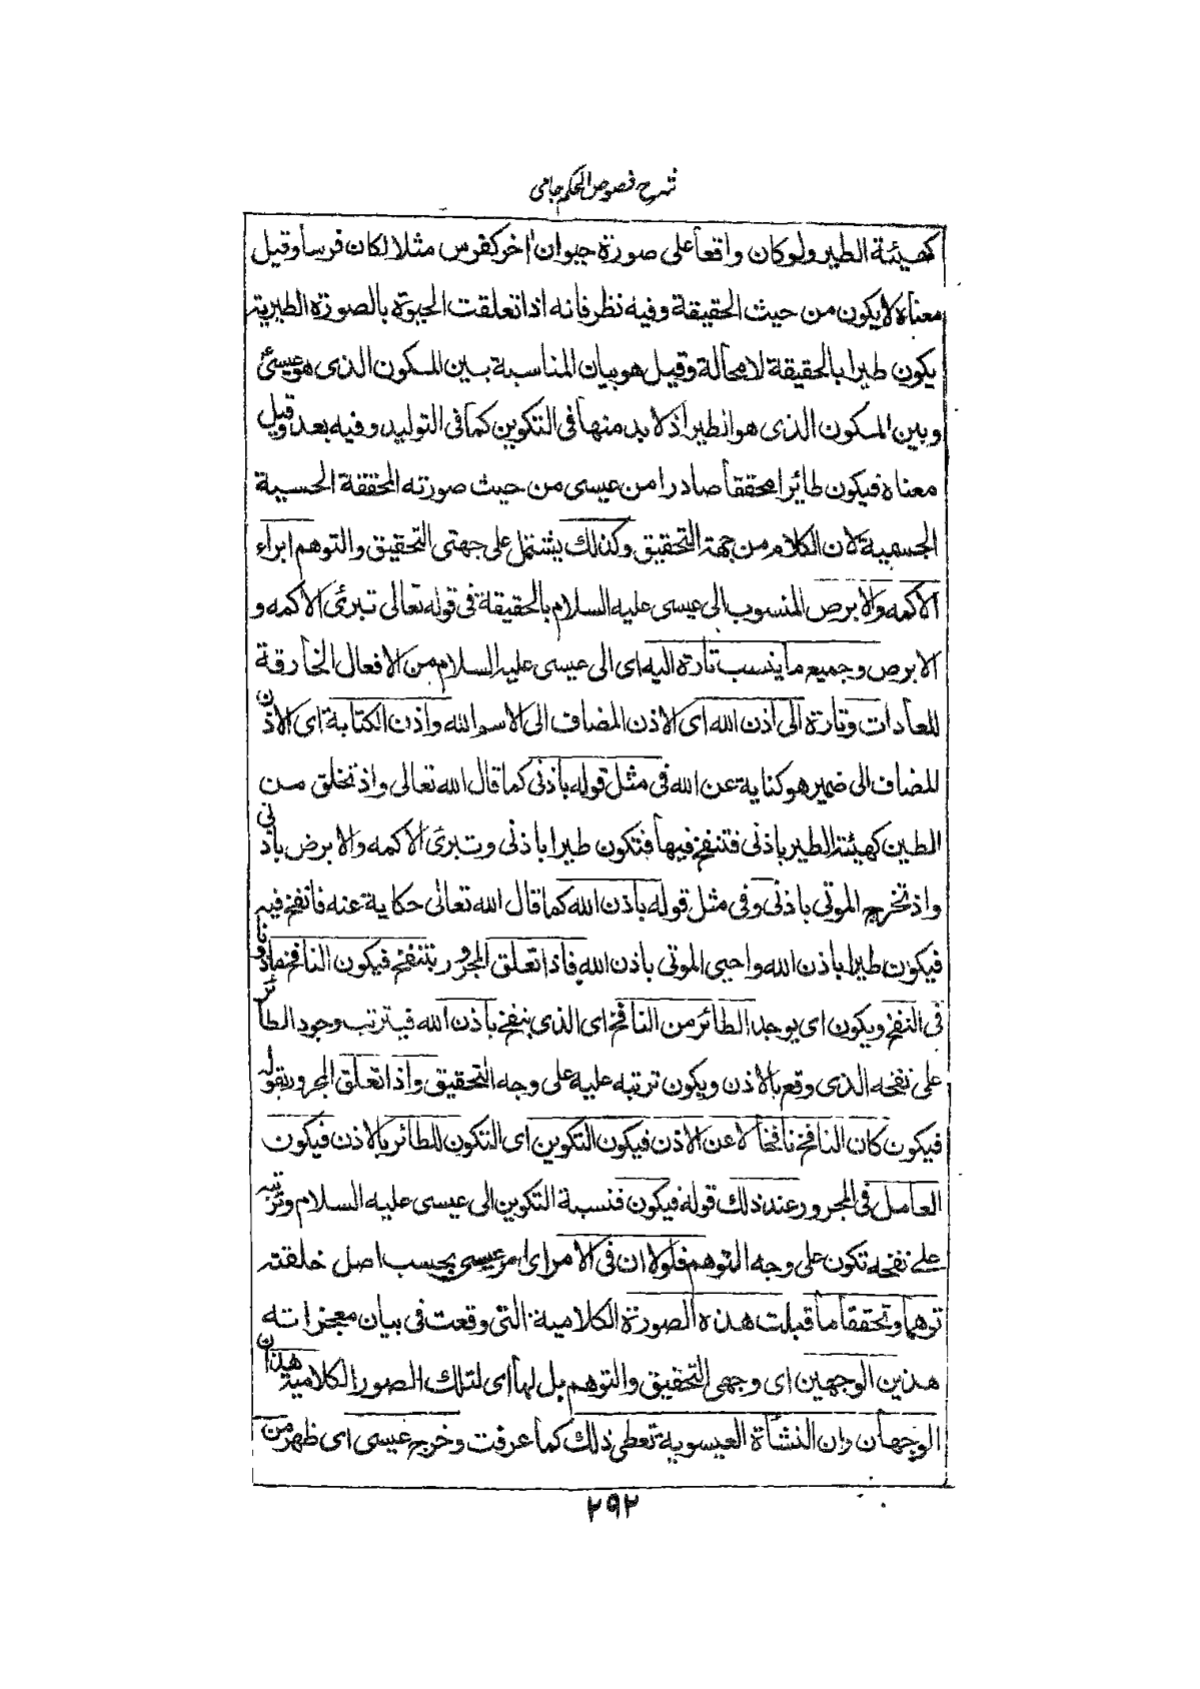 شرح فصوص الحكم جامى
كهيئة الطير ولو كان واقعا على صورة حيوان اخر كفرس مثلا لكان فرسا وقيل
معناه لا يكون من حيث الحقيقة وفيه نظر فانه اذا تعلقت الحيوة بالصورة الطيرية
يكون طيرا بالحقيقة لا محالة وقيل هو بيان المناسبة بين المكون الذى هو عيسى ع
وبين المكون الذى هو الطير اذ لا بد منها فى التكوين كما فى التوليد وفيه بعد وقيل
معناه فيكون طائرا محققا صادرا من عيسى من حيث صورته المحققة الحسية
الجسمية لان الكلام من جهة التحقيق وكذلك يشتمل على جهتى التحقيق والتوهم ابراء
الاكمه والابرص المنسوب الى عيسى عليه السلام بالحقيقة فى قوله تعالى تبرئ الاكمه و
الابرص وجميع ما ينسب تارة اليه اى الى عيسى عليه السلام من الافعال الخارقة
للعادات وتارة الى اذن الله اى الاذن المضاف الى الاسم الله واذن الكناية اى الاذن
المضاف الى ضمير هو كناية عن الله فى مثل قوله باذنى كما قال الله تعالى واذ تخلق من
الطين كهيئة الطير باذنى فتنفخ فيها فتكون طيرا باذنى وتبرئ الاكمه والابرص باذنى
واذ تخرج الموتى باذنى وفى مثل قوله باذن الله كما قال الله تعالى حكاية عنه فانفخ فيه
فيكون طيرا باذن الله واحيى الموتى باذن الله فاذا تعلق المجرور بتنفخ فيكون النافخ ماذونا
فى النفخ ويكون اى يوجد الطائر من النافخ اى الذى ينفخ باذن الله فيترتب وجود الطائر
على نفخه الذى وقع بالاذن ويكون ترتبه عليه على وجه التحقيق واذا تعلق المجرور بقوله
فيكون كان النافخ نافخا لا عن الاذن فيكون التكوين اى التكون للطائر بالاذن فيكون
العامل فى المجرور عند ذلك قوله فيكون فنسبة التكوين الى عيسى عليه السلام وترتبه
على نفخه تكون على وجه التوهم فلولا ان فى الامر اى امر عيسى بحسب اصل خلقته
توهما وتحققا ما قبلت هذه الصورة الكلامية التى وقعت فى بيان معجزاته
هذين الوجهين اى وجهى التحقيق والتوهم بل لها اى لتلك الصور الكلامية هذان
الوجهان وان النشأة العيسوية تعطى ذلك كما عرفت وخرج عيسى اى ظهر من
٢٩٢